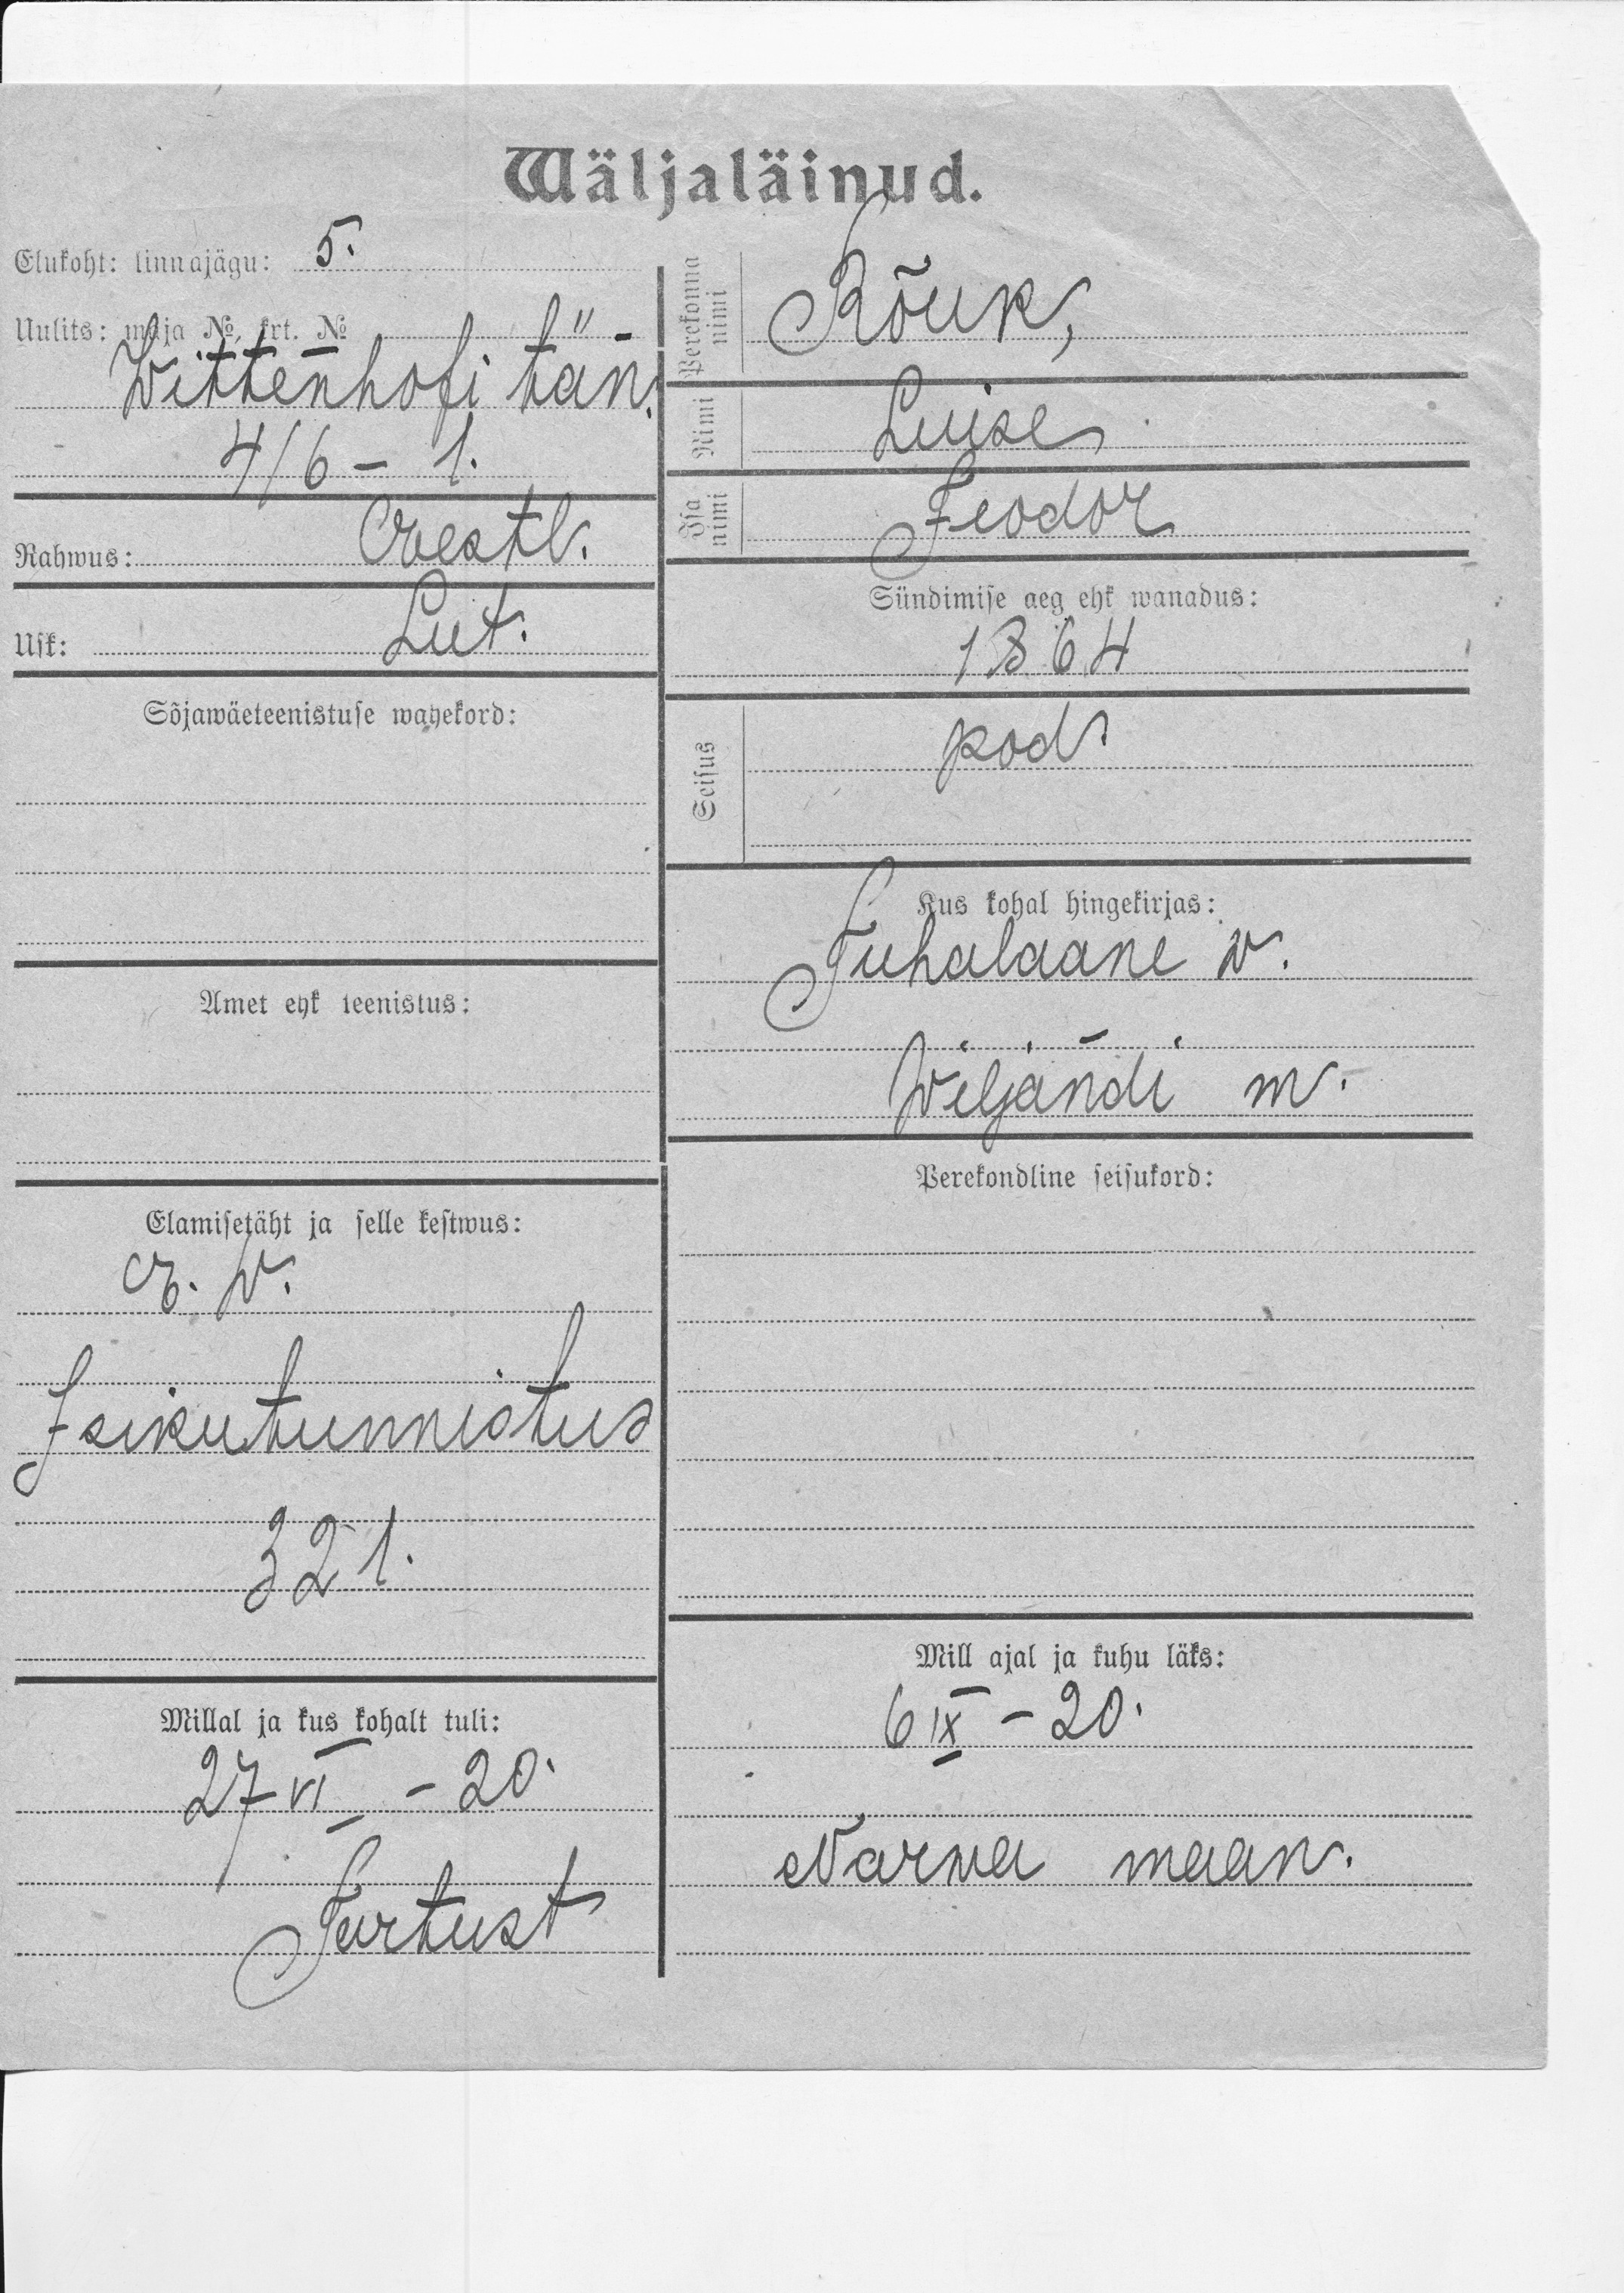 Wäljaläinud.
Elukoht: linnajägu: 5.
Uulits: maja №, krt. №
Wittenhofi tän.
4/6 – 1.
Rahwus: eestl.
Usk: Lut.
Sõjawäeteenistuse wahekord:
Amet ehk teenistus:
Elamisetäht ja selle kestwus:
E. W.
Isikutunnistus
321.
Millal ja kus kohalt tuli:
27 VI – 20.
Tartust
Perekonna nimi
Rõuk,
Nimi
Luise
Isa nimi
Feodor
Sündimise aeg ehk wanadus:
1864
Seisus
pod.
Kus kohal hingekirjas:
Tuhalaane w.
Wiljandi m.
Perekondline seisukord:
Mill ajal ja kuhu läks:
6 IX – 20.
Narwa maan.